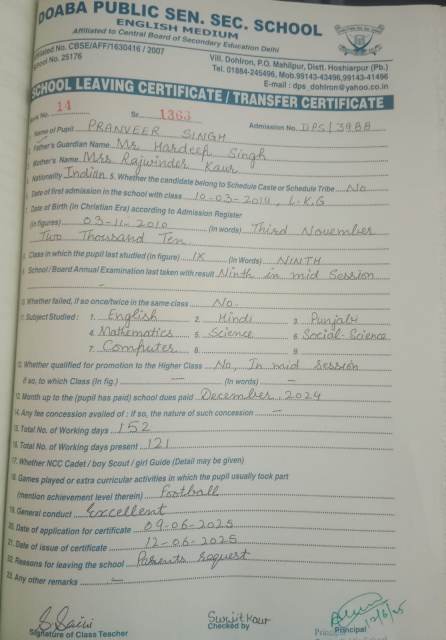 DOABA PUBLIC SEN. SEC. SCHOOL
ENGLISH MEDIUM
Affiliated to Central Board of Secondary Education Delhi
Affiliated No. CBSE/AFF/1630416 / 2007
School No. 25176
Vill. Dohlron, P.O. Mahilpur, Distt. Hoshiarpur (Pb.)
Tel. 01884-245496, Mob.99143-43496,99143-41496
E-mail : dps_dohlron@yahoo.co.in
SCHOOL LEAVING CERTIFICATE / TRANSFER CERTIFICATE
No. 14 Sr. 1363 Admission No. DPS/3988
Name of Pupil PRANVEER SINGH
Father's Guardian Name Mr Hardeep Singh
Mother's Name Mrs Rajwinder Kaur
Nationality Indian 5. Whether the candidate belong to Schedule Caste or Schedule Tribe No
Date of first admission in the school with class 10-03-2014, L.K.G
Date of Birth (in Christian Era) according to Admission Register
(in figures) 03-11-2010 (in words) Third November
Two Thousand Ten
Class in which the pupil last studied (in figure) IX (in Words) NINTH
School / Board Annual Examination last taken with result Ninth in mid Session
10. Whether failed, if so once/twice in the same class No.
11. Subject Studied : 1. English 2. Hindi 3. Punjabi
4. Mathematics 5. Science 6. Social-Science
7. Computer 8. 9.
12. Whether qualified for promotion to the Higher Class No, In mid session
if so, to which Class (in fig.) — (in words) —
13. Month up to the (pupil has paid) school dues paid December, 2024
14. Any fee concession availed of : if so, the nature of such concession —
15. Total No. of Working days 152
16. Total No. of Working days present 121
17. Whether NCC Cadet / boy Scout / girl Guide (Detail may be given)
18. Games played or extra curricular activities in which the pupil usually took part
(mention achievement level therein) Football
19. General conduct Excellent
20. Date of application for certificate 09-06-2025
21. Date of issue of certificate 12-06-2025
22. Reasons for leaving the school Parents request
23. Any other remarks —
S. Saini Surjit Kaur 12/6/25
Signature of Class Teacher Checked by Principal